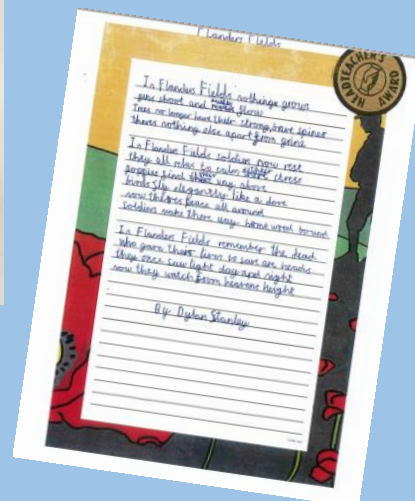 Flanders Fields
HEADTEACHER'S AWARD
In Flanders Fields nothings grows
guns shoot and glow
Trees no longer have their strong, brave spines
theres nothing else apart from
In Flanders Fields soldiers now rest
they all relax to calm stress
poppies find their way above
kindly elegantly like a dove
now theres peace all around
Soldiers make there way home word bound
In Flanders Fields remember the dead
who gave their lives to save are heads
they once saw light day and night
now they watch from heavens height
By Dylan Stanley